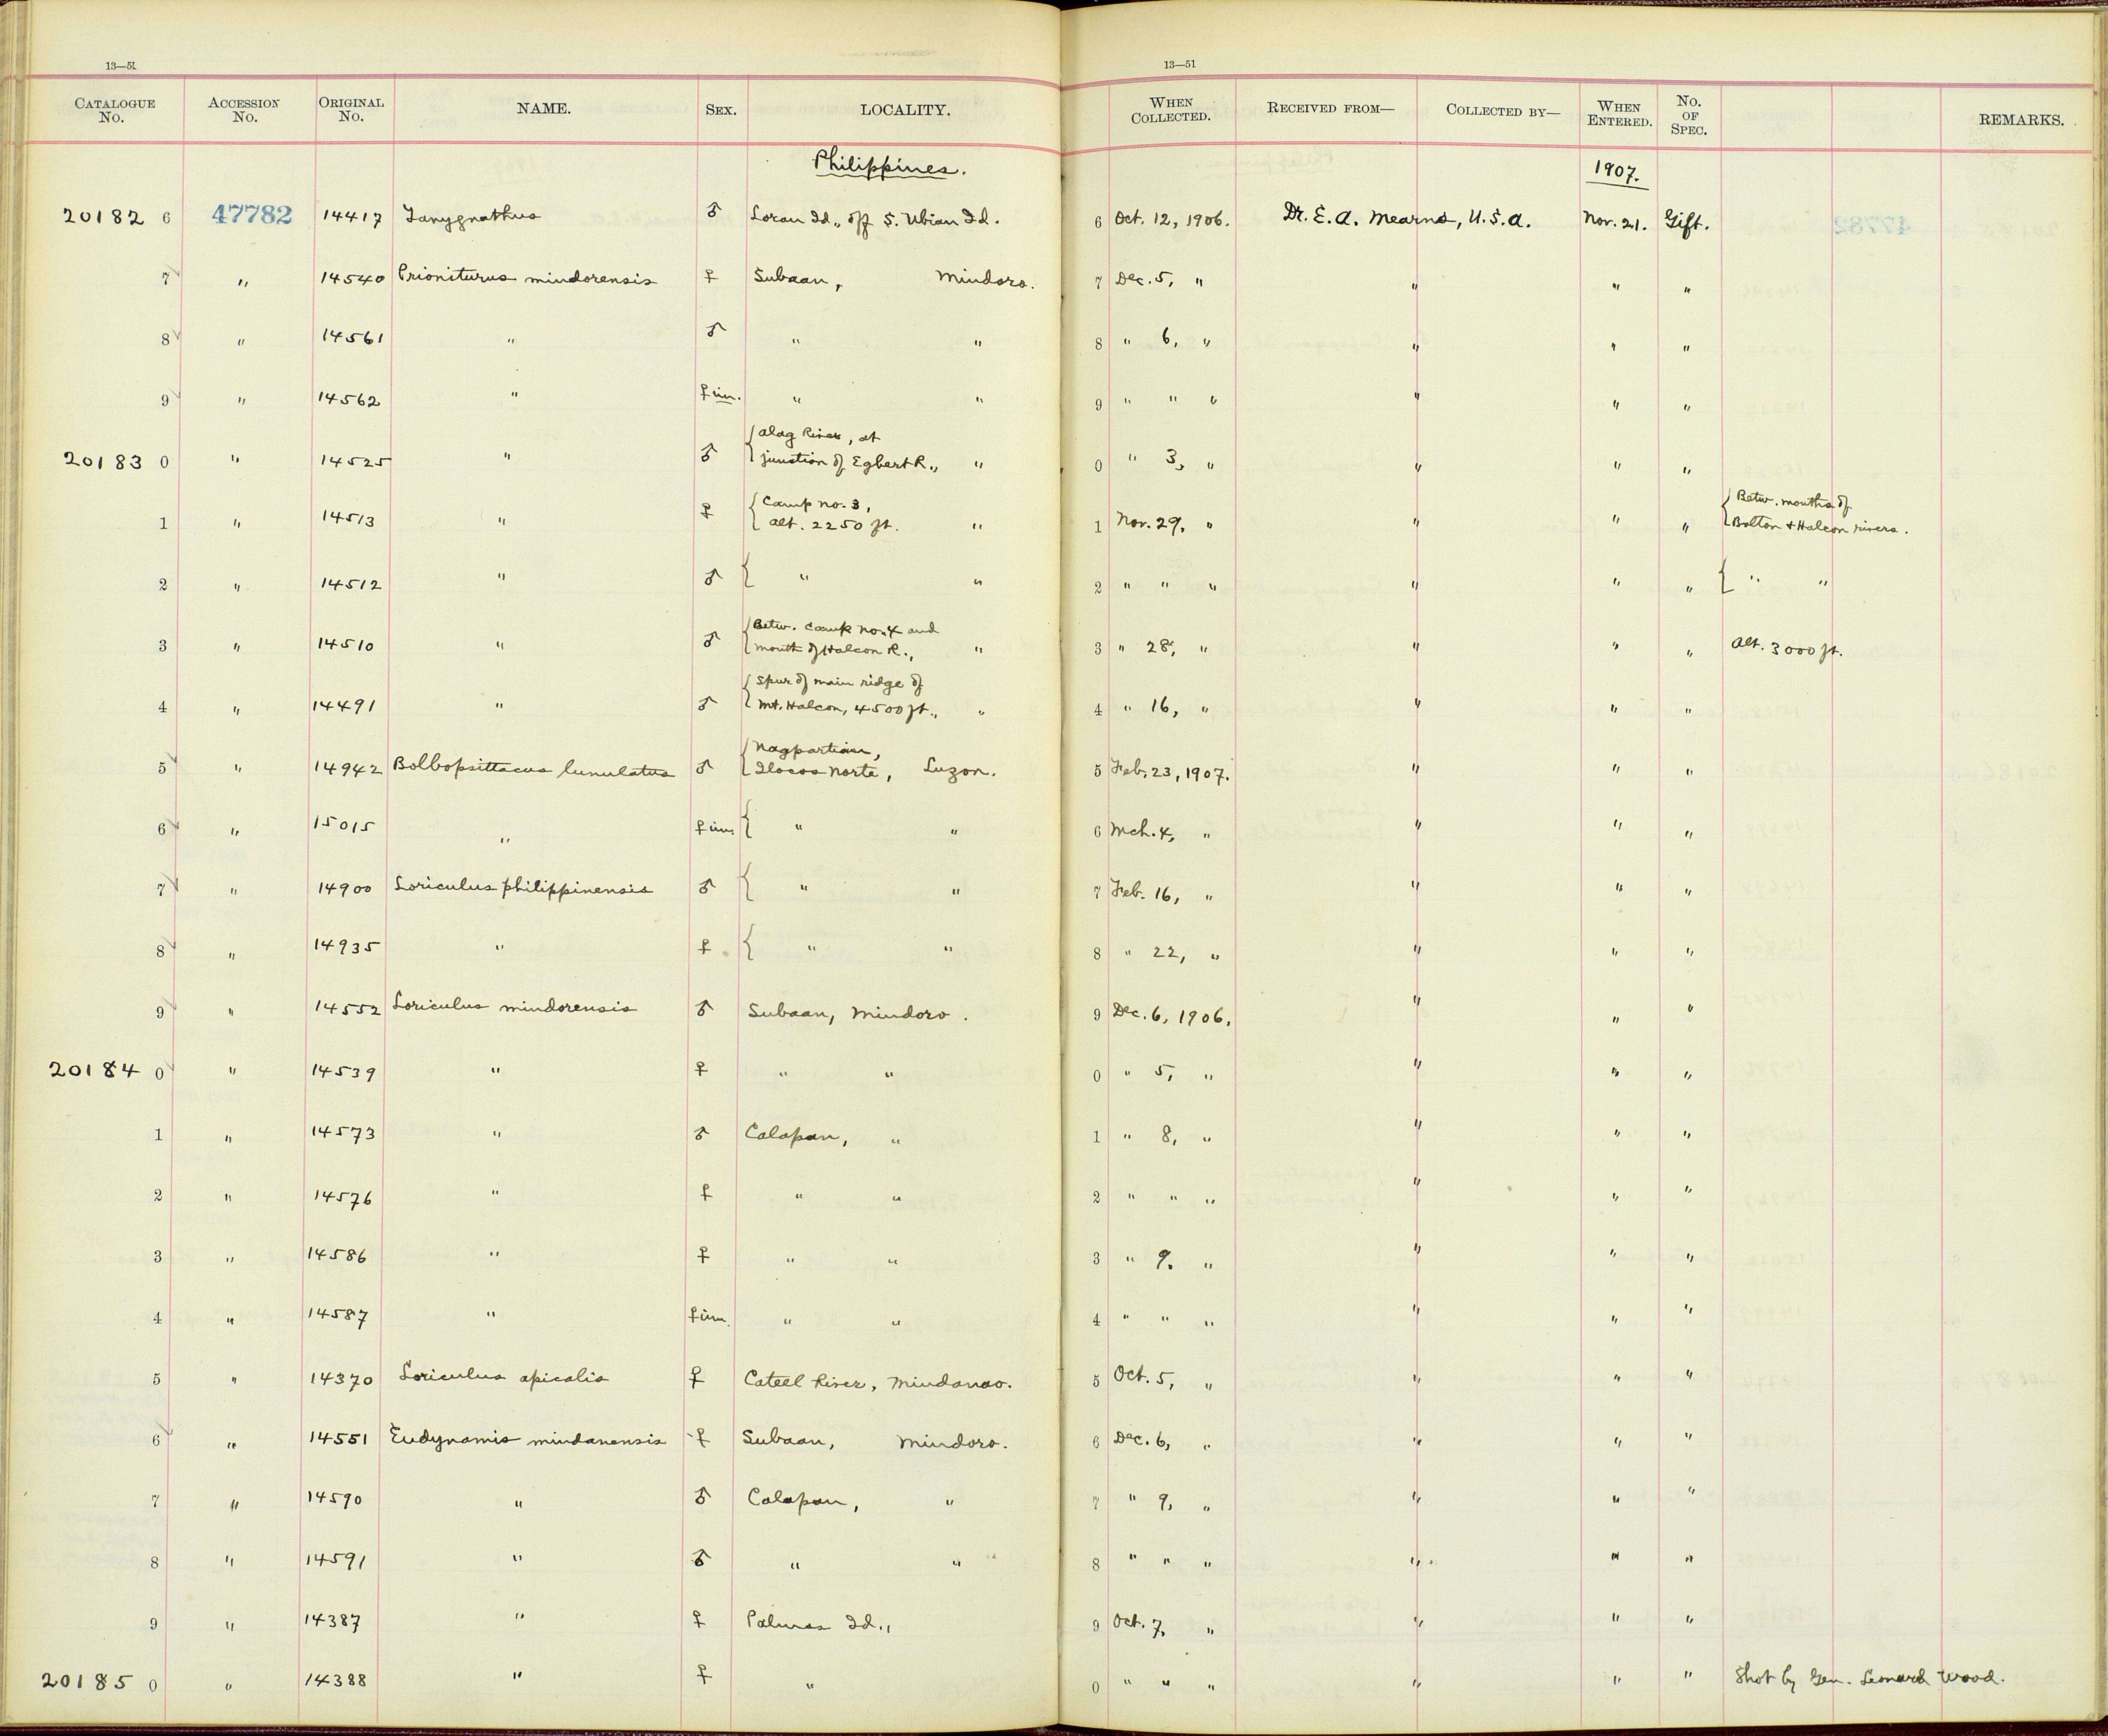 13—51
CATALOGUE No. ACCESSION No. ORIGINAL No. NAME. SEX. LOCALITY.
13—51
WHEN COLLECTED. RECEIVED FROM— COLLECTED BY— WHEN ENTERED. No. OF SPEC. REMARKS.
Philippines. 1907.
20182 6 47782 14417 Tanygnathus ♂ Loran Id., off S. Ubian Id. 6 Oct. 12, 1906. Dr. E. A. Mearns, U.S.A. Nov. 21. Gift.
7 " 14540 Prioniturus mindorensis ♀ Subaan, Mindoro. 7 Dec. 5, " " " "
8 " 14561 " ♂ " " 8 " 6, " " " "
9 " 14562 " ♀ im. " " 9 " " " " " "
20183 0 " 14525 " ♂ { Alag River, at
junction of Egbert R., " 0 " 3, " " " "
1 " 14513 " ♀ { Camp No. 3,
Alt. 2250 ft. " 1 Nov. 29, " " " " { Betw. mouths of
Bolton + Halcon rivers.
2 " 14512 " ♂ { " " 2 " " " " " " { " "
3 " 14510 " ♂ { Betw. Camp No. 4 and
mouth of Halcon R., " 3 " 28, " " " " Alt. 3000 ft.
4 " 14491 " ♂ { Spur of main ridge of
Mt. Halcon, 4500 ft., " 4 " 16, " " " "
5 " 14942 Bolbopsittacus lunulatus ♂ { Nagpartian,
Ilocos Norte, Luzon. 5 Feb. 23, 1907. " " "
6 " 15015 " ♀ im { " " 6 Mch. 4, " " " "
7 " 14900 Loriculus philippinensis ♂ { " " 7 Feb. 16, " " " "
8 " 14935 " ♀ { " " 8 " 22, " " " "
9 " 14552 Loriculus mindorensis ♂ Subaan, Mindoro. 9 Dec. 6, 1906, " " "
20184 0 " 14539 " ♀ " " 0 " 5, " " " "
1 " 14573 " ♂ Calapan, " 1 " 8, " " " "
2 " 14576 " ♀ " " 2 " " " " " "
3 " 14586 " ♀ " " 3 " 9. " " " "
4 " 14587 " ♀ im. " " 4 " " " " " "
5 " 14370 Loriculus apicalis ♀ Cateel River, Mindanao. 5 Oct. 5, " " " "
6 " 14551 Eudynamis mindanensis ♀ Subaan, Mindoro. 6 Dec. 6, " " " "
7 " 14590 " ♂ Calapan, " 7 " 9, " " " "
8 " 14591 " ♂ " " 8 " " " " " "
9 " 14387 " ♀ Palmas Id., 9 Oct. 7, " " " "
20185 0 " 14388 " ♀ " 0 " " " " " " Shot by Gen. Leonard Wood.